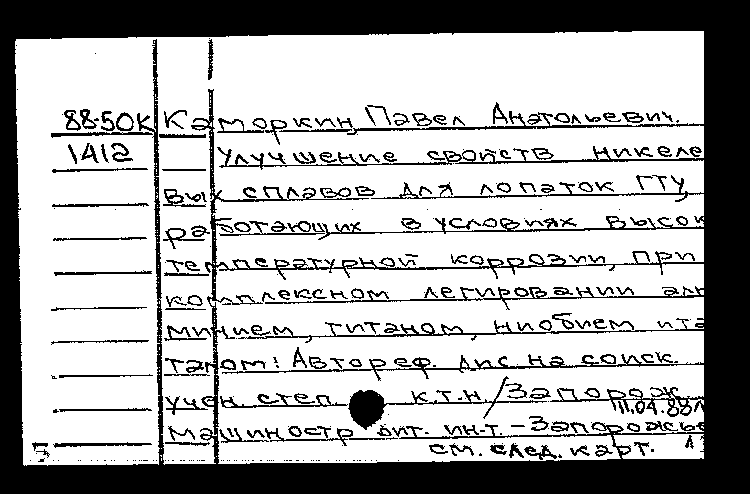 88-50К Каморкин, Павел Анатольевич.
1412 Улучшение свойств никеле
вых сплавов для лопаток ГТУ,
работающих в условиях высок
температурной коррозии, при
комплексном легировании алю
минием, титаном, ниобием и та
талом: Автореф. дис. на соиск.
учен. степ. к.т.н. / Запорож.
111.04.88
машиностр. ин-т. - Запорожье
см. след. карт.